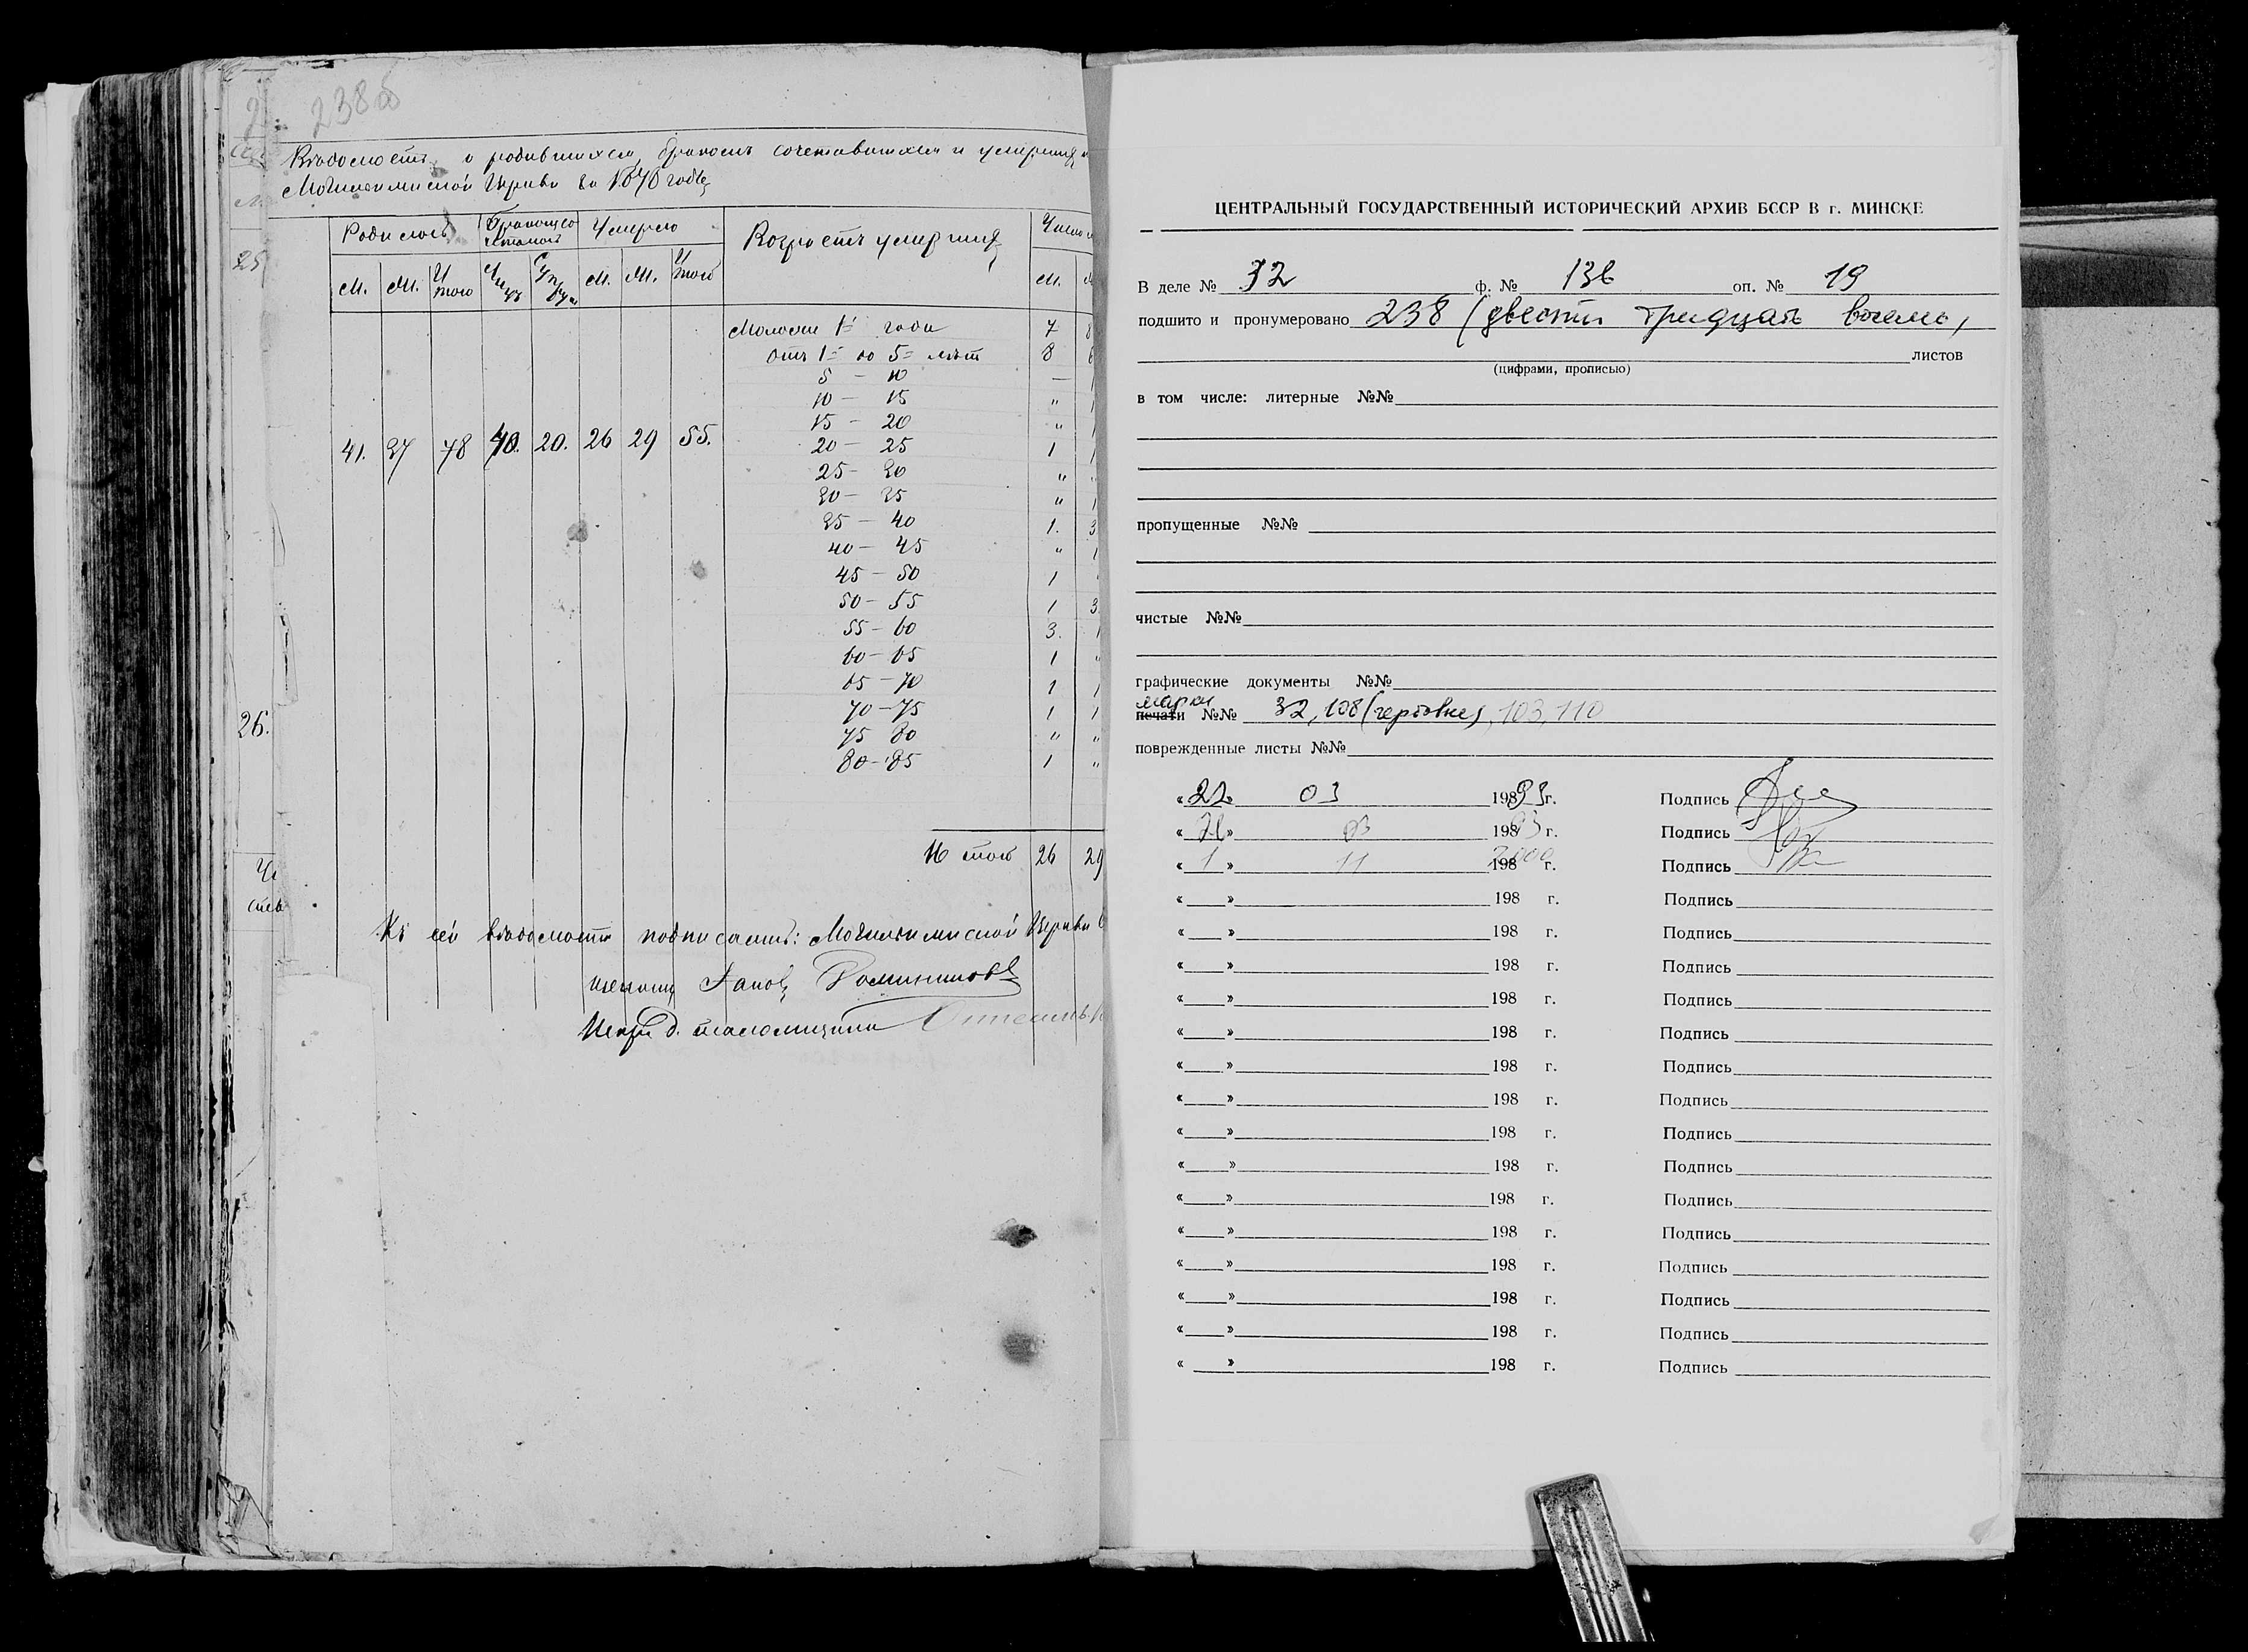 238 об
Ведомость о родившихся, браком сочетавшихся и умерших
Могилянской Церкви за 1870 годъ
Родилось
Умерло
Возрастъ умершихъ
Число
М.
М.
И того
М.
М.
И того
М.
25
Моложе 1го года 7 8
отъ 1го до 5ти летъ 8 6
5 — 10 — 1
10 — 15 " 1
15 — 20 " 1
41. 37 78 40. 20. 26 29 55.
20 — 25 1 1
25 — 30 " "
30 — 35 " 1
35 — 40 1. 3
40 — 45 " 1
45 — 50 1 "
50 — 55 1 3
55 — 60 3. 1
60 — 65 1 "
65 — 70 1 1
26.
70 — 75 1 1
75 80 " "
80 — 85 1 "
И того 26 29
Къ сей ведомости подписались: Церкви
ЦЕНТРАЛЬНЫЙ ГОСУДАРСТВЕННЫЙ ИСТОРИЧЕСКИЙ АРХИВ БССР В г. МИНСКЕ
В деле № 32 ф. № 136 оп. № 19
подшито и пронумеровано 238 (двести тридцать восемь)
листов
(цифрами, прописью)
в том числе: литерные №№
пропущенные №№
чистые №№
графические документы №№
марки
печати №№ 32, 108 (гербовые), 103, 110
поврежденные листы №№
« 22 » 03 1993 г. Подпись
« » 03 198 93 г. Подпись
« 1 » 11 198 2000 г. Подпись
« » 198 г. Подпись
« » 198 г. Подпись
« » 198 г. Подпись
« » 198 г. Подпись
« » 198 г. Подпись
« » 198 г. Подпись
« » 198 г. Подпись
« » 198 г. Подпись
« » 198 г. Подпись
« » 198 г. Подпись
« » 198 г. Подпись
« » 198 г. Подпись
« » 198 г. Подпись
« » 198 г. Подпись
« » 198 г. Подпись